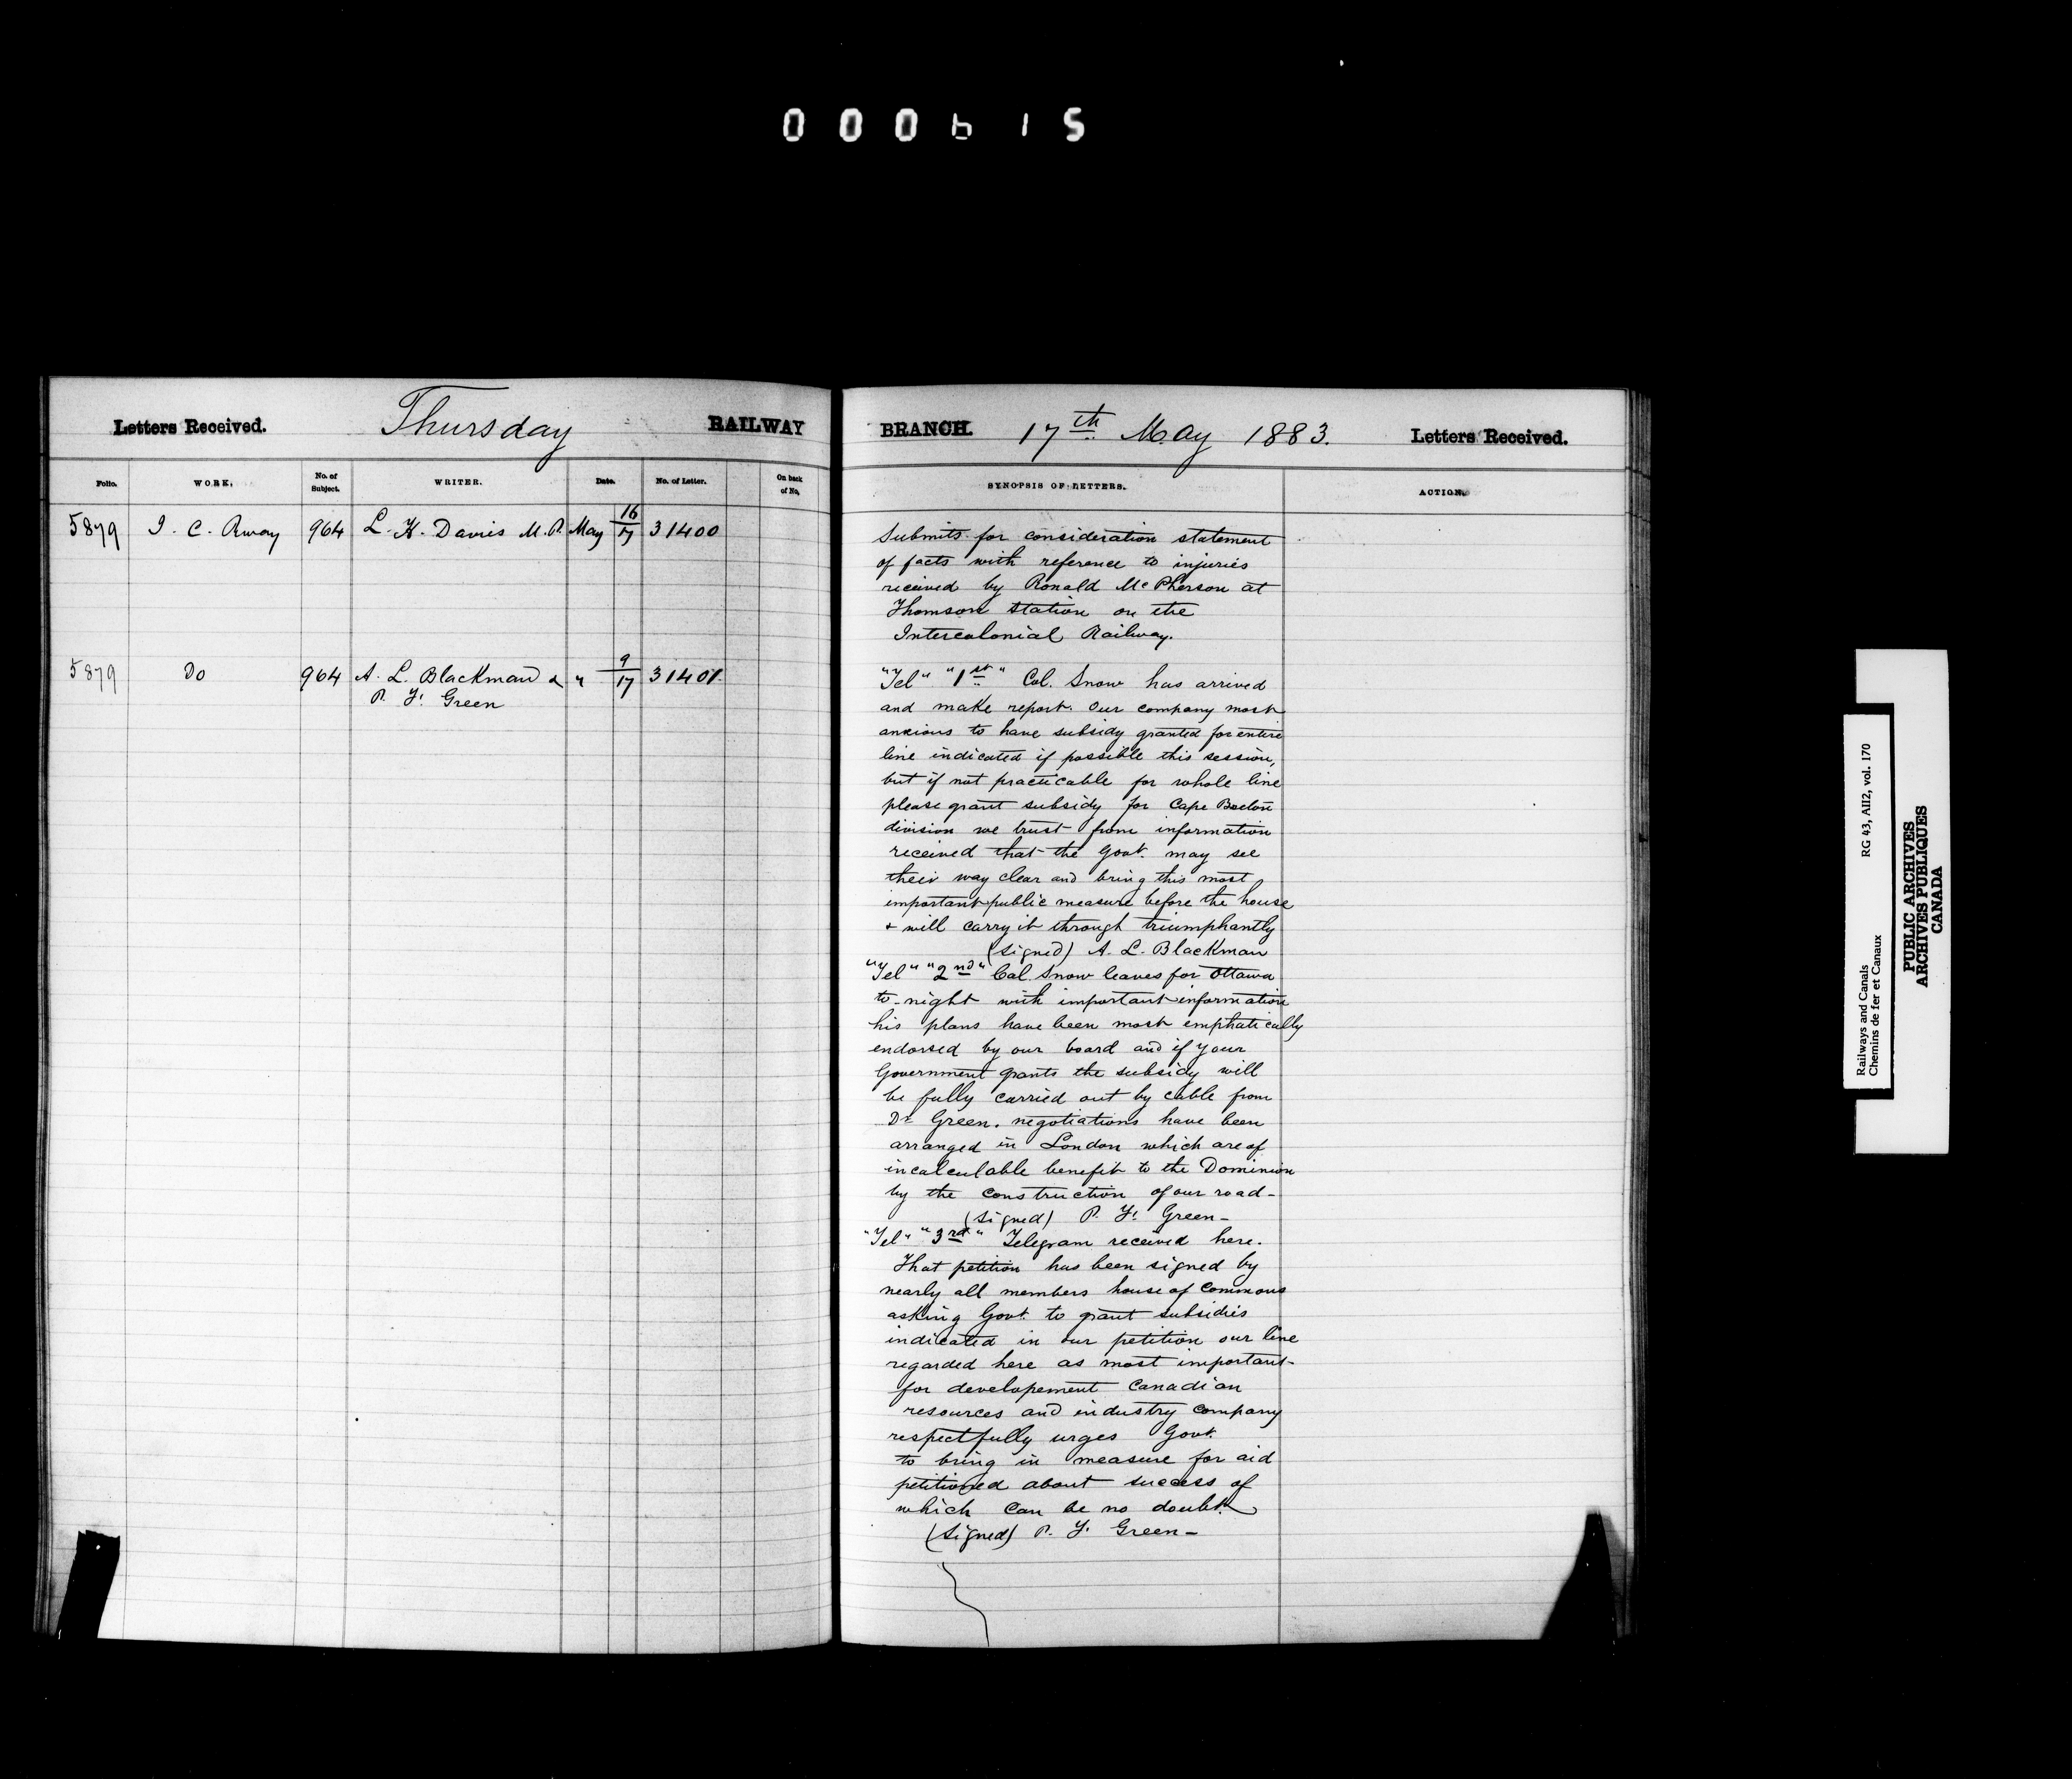 000615
Letters Received. Thursday RAILWAY
Folio. WORK. No. of Subject. WRITER. Date. No. of Letter. On back of No.
5879 I. C. Rway 964 L. H. Davies M.P. May 16/17 31400
5879 Do 964 A. L. Blackman & " 9/17 31401
P. Y. Green
BRANCH. 17th May 1883. Letters Received.
SYNOPSIS OF LETTERS. ACTION.
Submits for consideration statement
of facts with reference to injuries
received by Ronald McPherson at
Thomson station on the
Intercolonial Railway.
"Tel" "1st" Col. Snow has arrived
and make report. Our company most
anxious to have subsidy granted for entire
line indicated if possible this session,
but if not practicable for whole line
please grant subsidy for Cape Breton
division we trust from information
received that the Govt. may see
their way clear and bring this most
important public measure before the house
& will carry it through triumphantly
(signed) A. L. Blackman
"Tel" "2nd" Col. Snow leaves for Ottawa
to-night with important information
his plans have been most emphatically
endorsed by our board and if your
Government grants the subsidy will
be fully carried out by cable from
Dr Green. negotiations have been
arranged in London which are of
incalculable benefit to the Dominion
by the construction of our road-
(signed) P. Y. Green-
"Tel" "3rd" Telegram received here.
That petition has been signed by
nearly all members house of Commons
asking Govt. to grant subsidies
indicated in our petition our line
regarded here as most important-
for developement Canadian
resources and industry company
respectfully urges Govt.
to bring in measure for aid
petitioned about success of
which can be no doubt.
(signed) P. Y. Green-
Railways and Canals RG 43, AII2, vol. 170
Chemins de fer et Canaux
PUBLIC ARCHIVES
ARCHIVES PUBLIQUES
CANADA